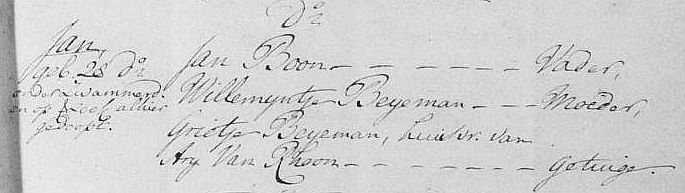 Do
Jan,
geb. 28 do
onder Zwammerd.
en op
gedoopt.
Jan Boon - - - - - - - Vader,
Willemyntje Beyeman - - - Moeder,
Grietje Beyeman, huisvr. van
Ary Van Rhoon - - - - - - - getuige.